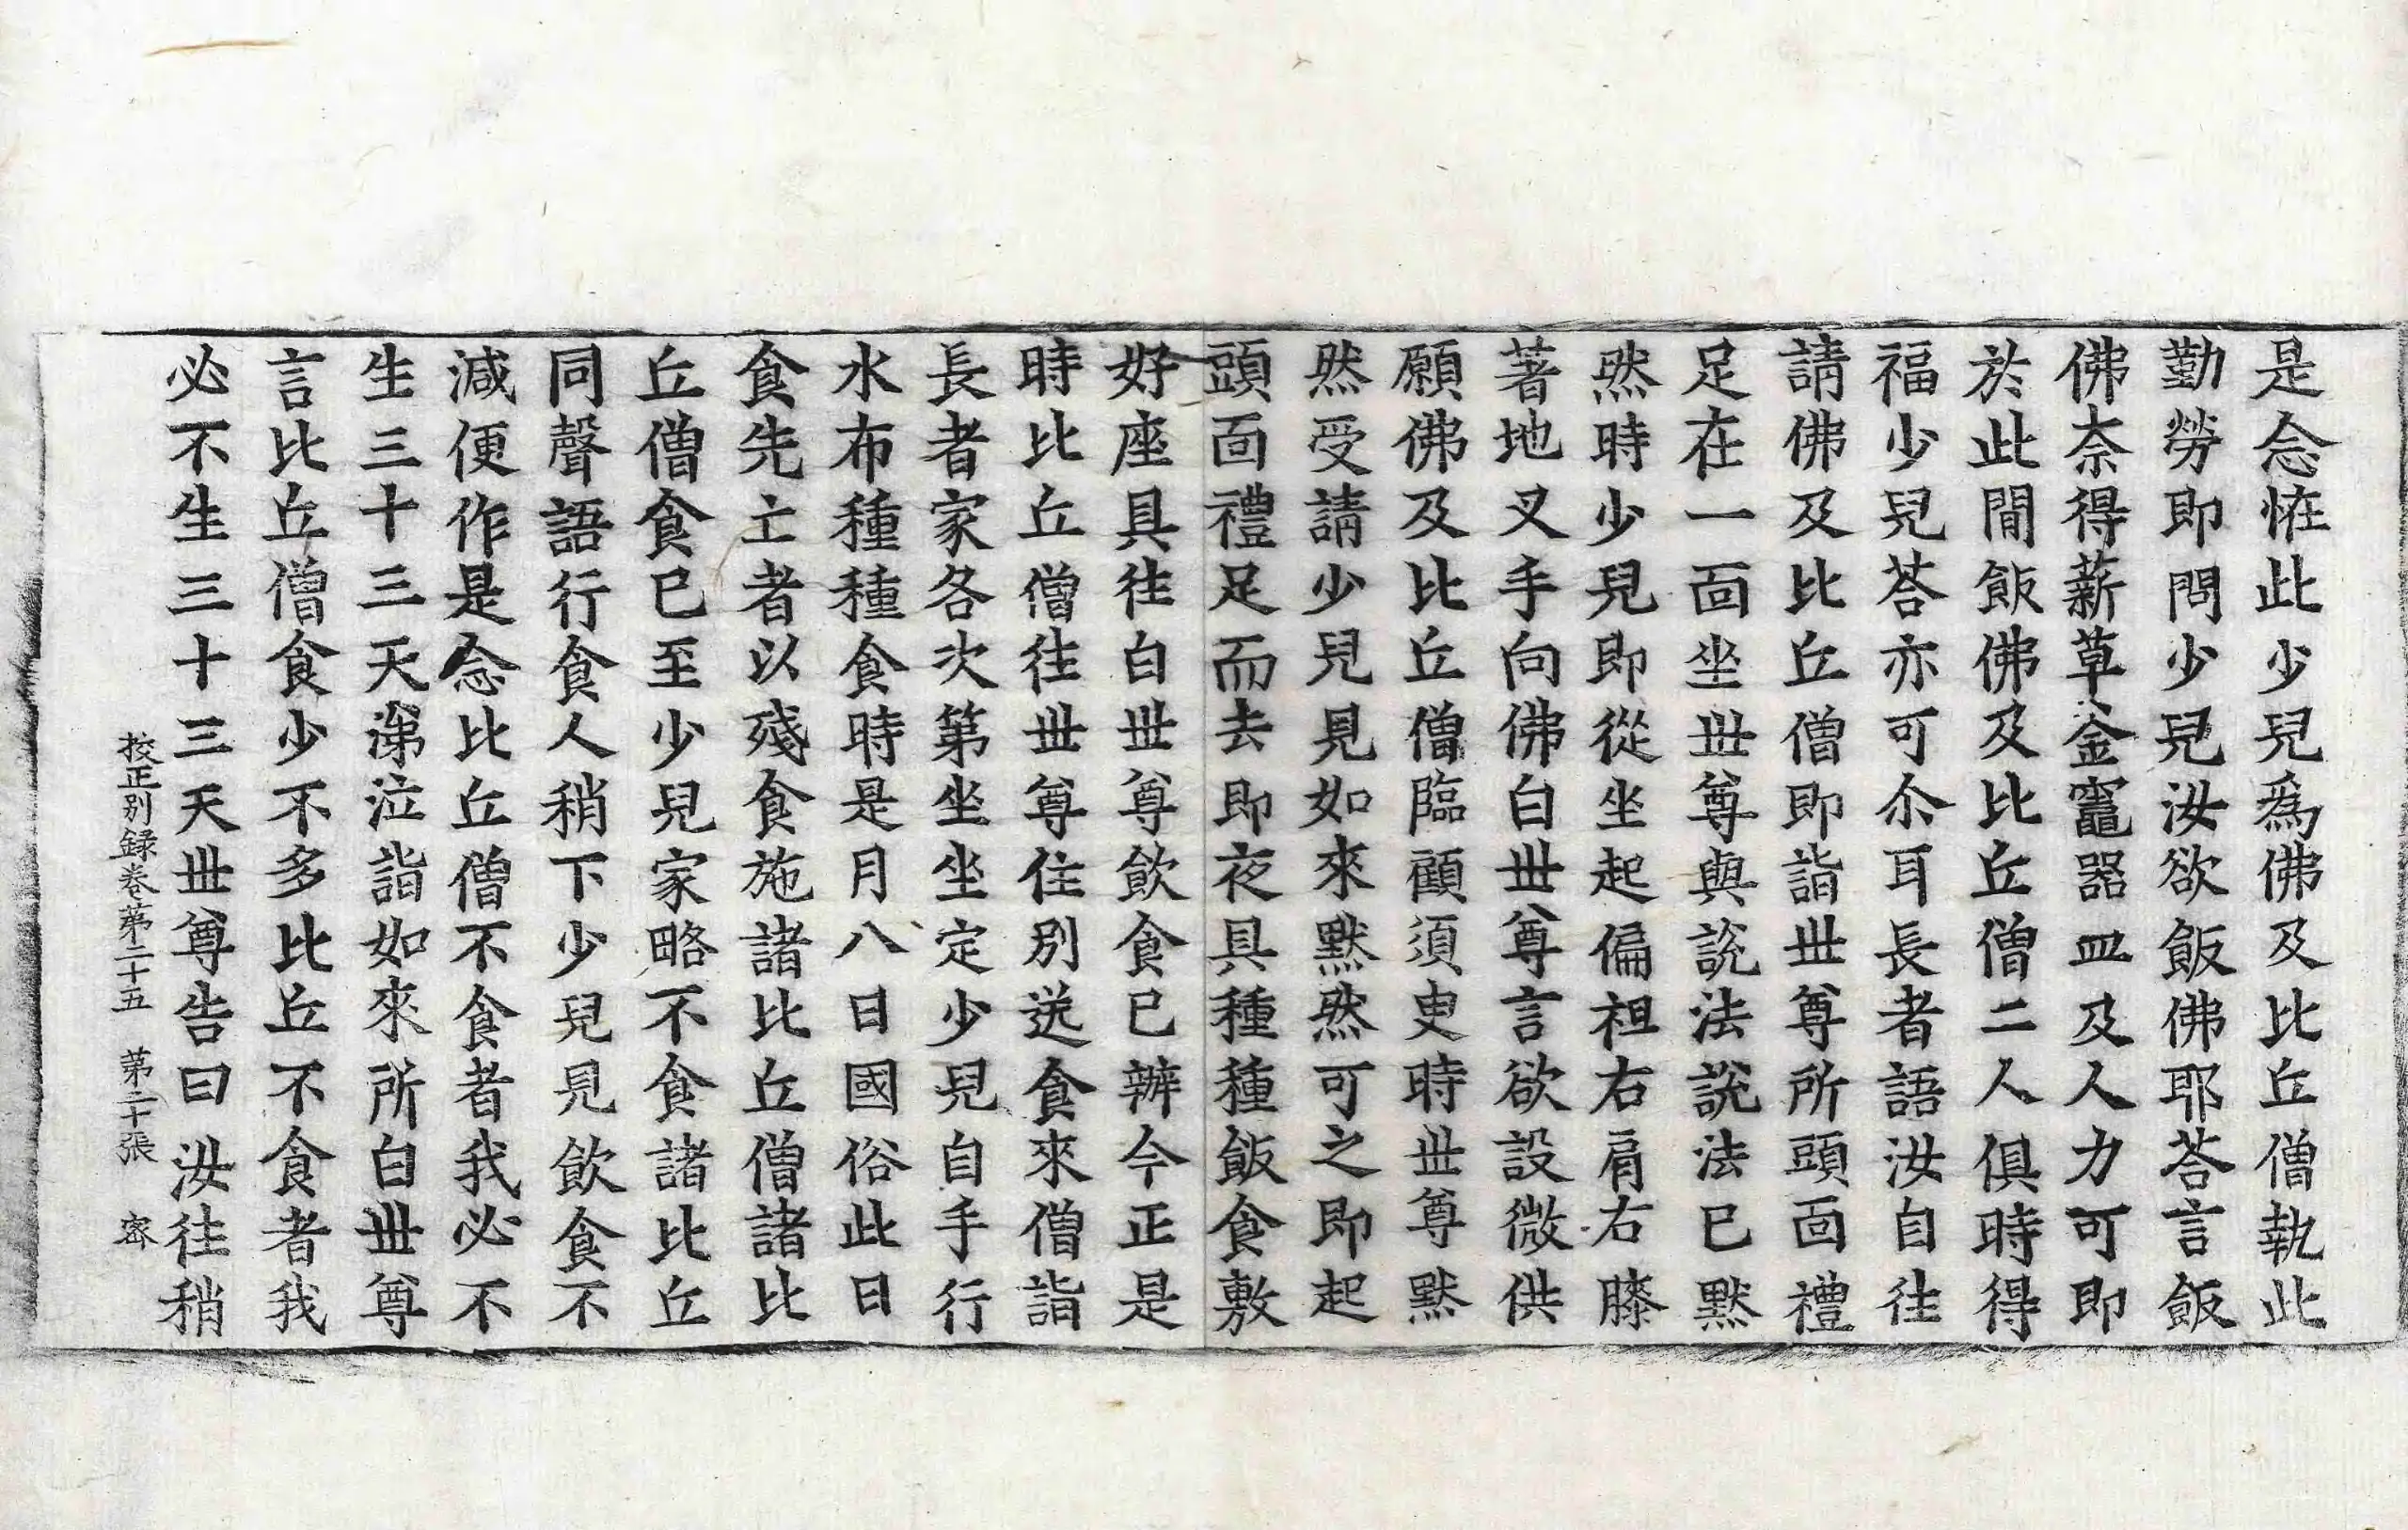 是念恠此少兒爲佛及比丘僧執此
勤勞即問少兒汝欲飯佛耶荅言飯
佛柰得薪草釜竈器皿及人力可即
於此間飯佛及比丘僧二人俱時得
福少兒荅亦可尒耳長者語汝自往
請佛及比丘僧即詣丗尊所頭面禮
足在一面坐丗尊與說法說法已黙
然時少兒即從坐起偏袒右肩右膝
著地叉手向佛白丗尊言欲設微供
願佛及比丘僧臨顧須臾時丗尊黙
然受請少兒見如來黙然可之即起
頭面禮足而去即夜具種種飯食敷
好座具往白丗尊飲食已辦今正是
時比丘僧往丗尊住別送食來僧詣
長者家各次第坐坐定少兒自手行
水布種種食時是月八日國俗此日
食先亡者以殘食施諸比丘僧諸比
丘僧食已至少兒家略不食諸比丘
同聲語行食人稍下少兒見飲食不
減便作是念比丘僧不食者我必不
生三十三天涕泣詣如來所白丗尊
言比丘僧食少不多比丘不食者我
必不生三十三天丗尊告曰汝往稍
校正別録卷苐二十五　苐二十張　宻